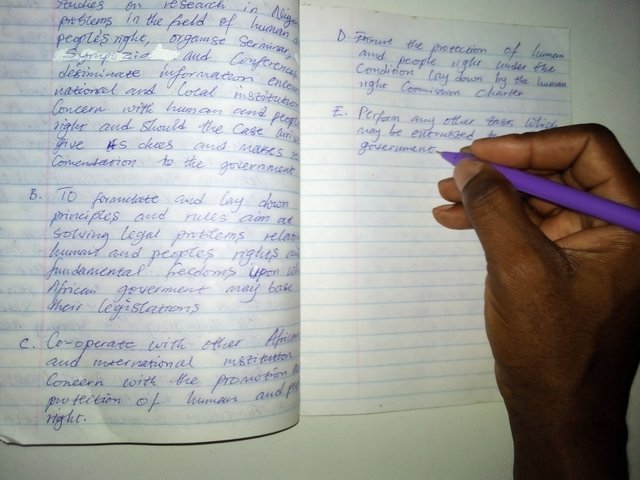 Studies on research in Niger
problems in the field of human &
peoples right, organise Seminar,
Symposia and Conferences
desiminate information encou
national and Local institution
Concern with human and people
right and should the case arise
give its dues and makes re
Comendation to the government.
B. To formulate and lay down
principles and rules aim at
solving legal problems relati
human and peoples rights an
fundamental freedoms upon wh
African goverment may base
their legislations
C. Co-operate with other Africa
and international institution
Concern with the promotion &
protection of human and peo
right.
D. Ensure the protection of human
and people right under the
Condition lay down by the human
right Commission Charter
E. Perform any other task which
may be entrusted to
government.